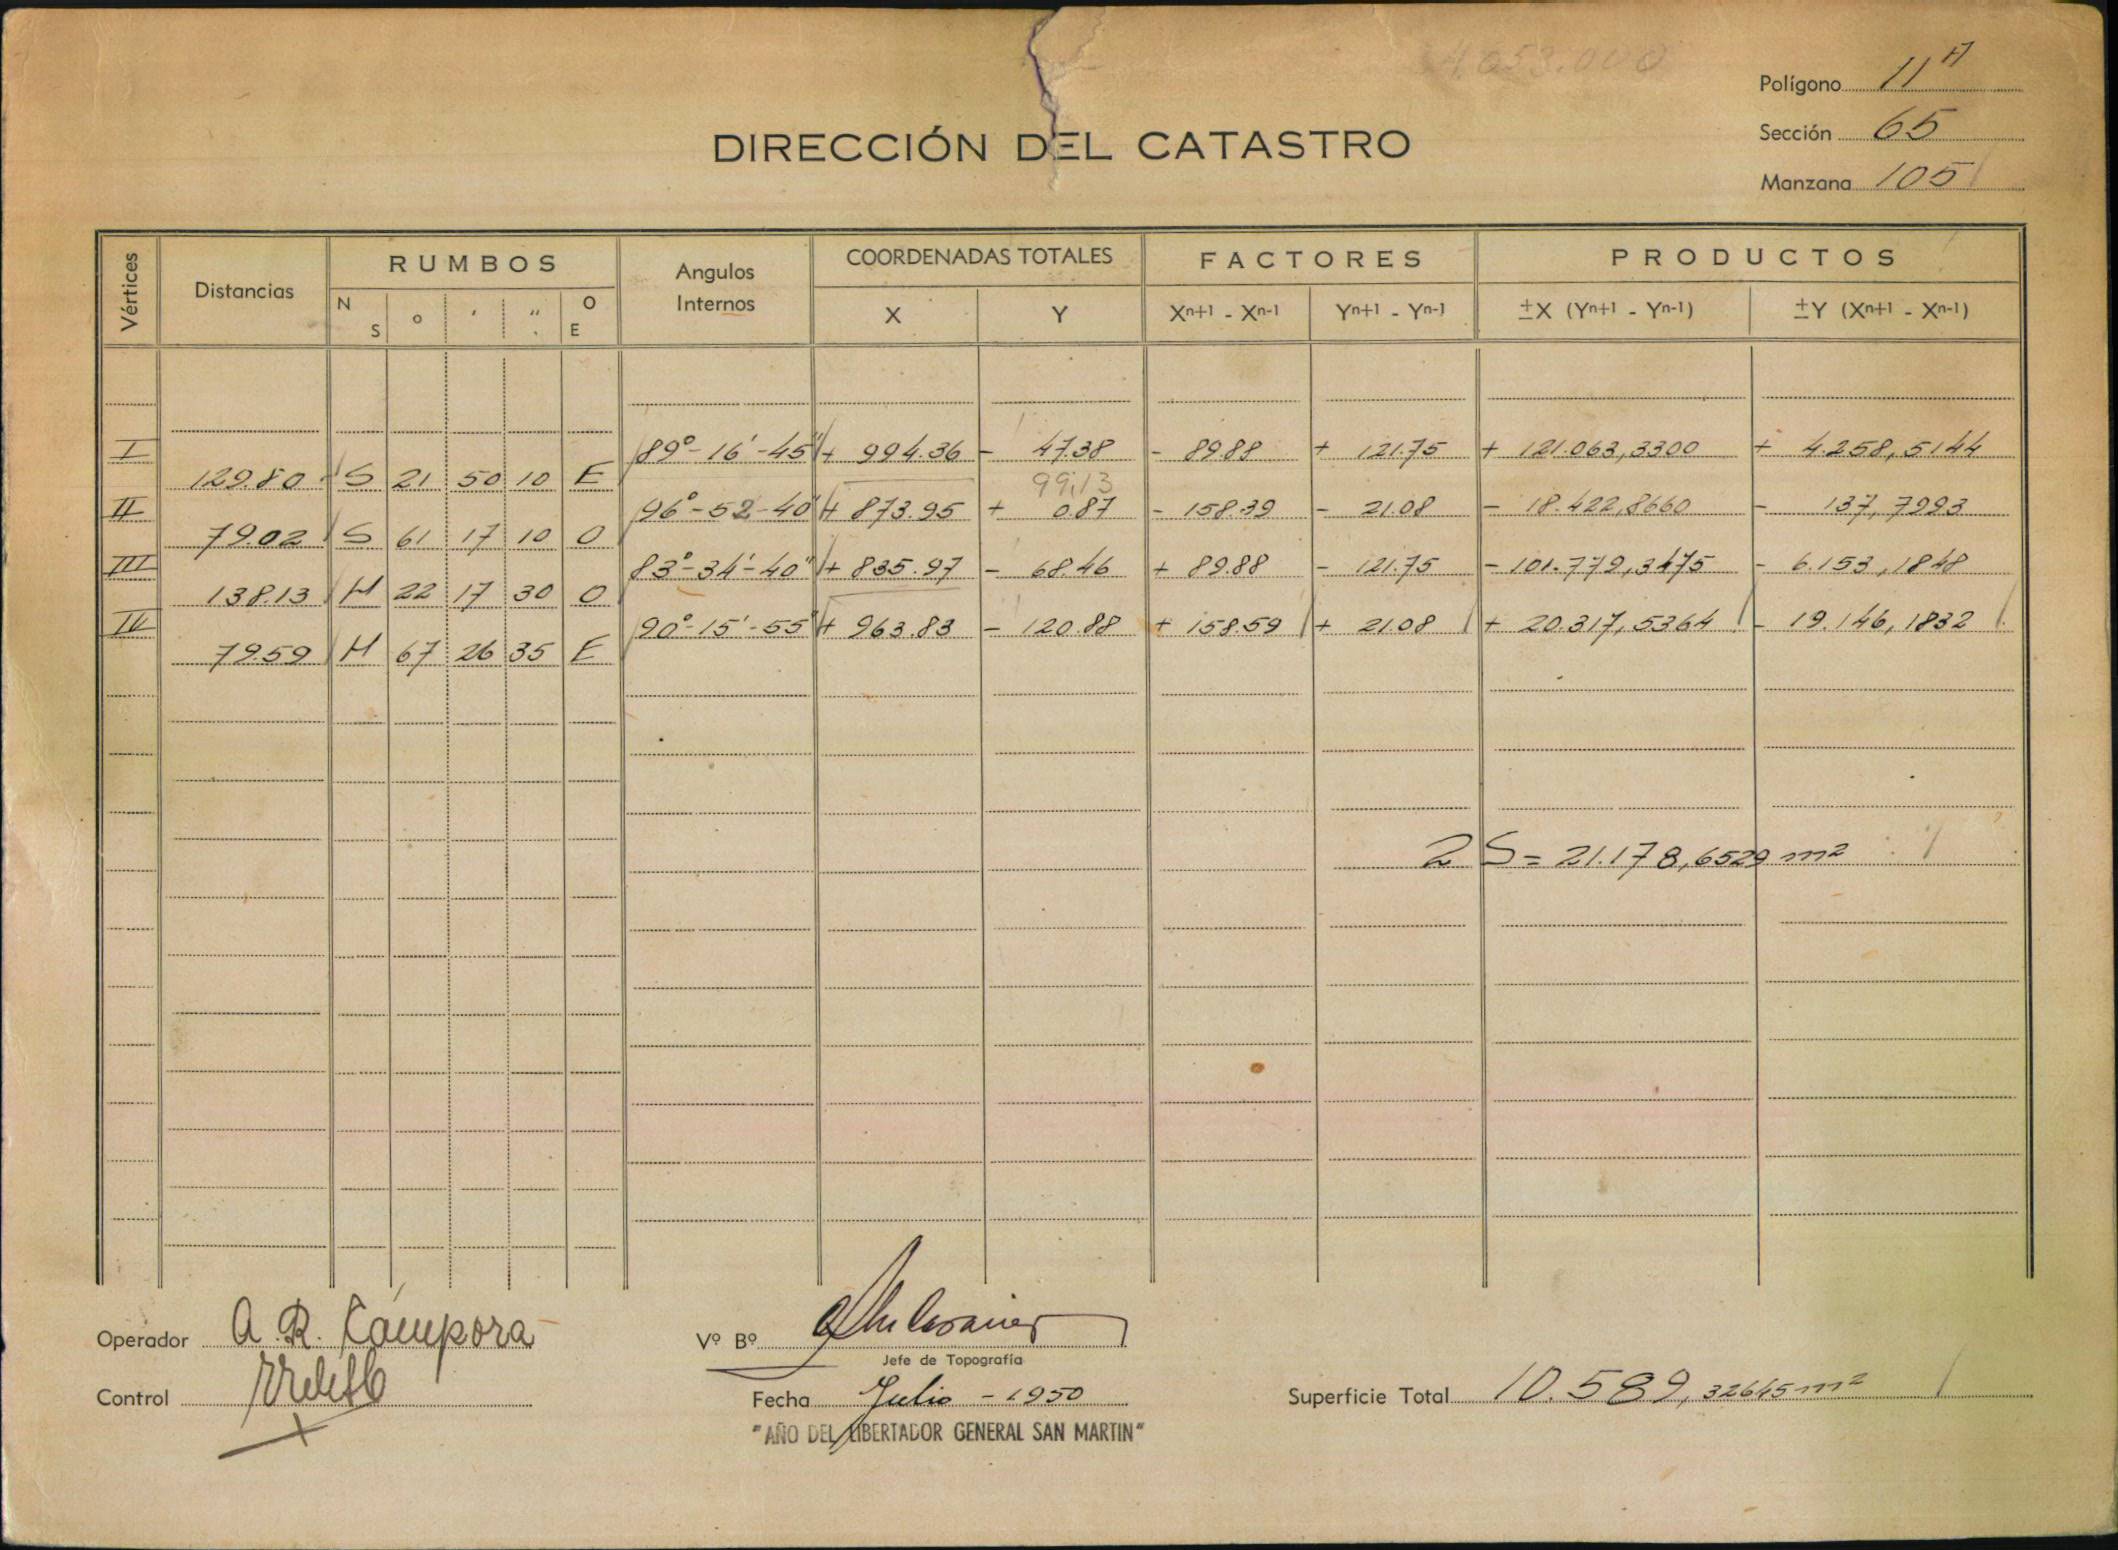 4.053.000
Polígono 11 A
Sección 65
Manzana 105
DIRECCIÓN DEL CATASTRO
Vértices Distancias RUMBOS Angulos Internos COORDENADAS TOTALES FACTORES PRODUCTOS
N S o ' " O E X Y Xn+1 - Xn-1 Yn+1 - Yn-1 ±X (Yn+1 - Yn-1) ±Y (Xn+1 - Xn-1)
I 89°-16'-45" + 994.36 - 47.38 - 89.88 + 121.75 + 121.063,3300 + 4.258,5144
129.80 S 21 50 10 E 99,13
II 96°-52-40" + 873.95 + 0.87 - 158.39 - 21.08 - 18.422,8660 - 137,7993
79.02 S 61 17 10 O
III 83°-34'-40" + 835.97 - 68.46 + 89.88 - 121.75 - 101.779,3475 - 6.153,1848
138.13 N 22 17 30 O
IV 90°-15'-55" + 963.83 - 120.88 + 158.59 + 21.08 + 20.317,5364 - 19.146,1832
79.59 N 67 26 35 E
2 S = 21.178,6529 m2
Operador A. R. Cámpora
Vº Bº
Jefe de Topografía
Control
Fecha Julio - 1950
Superficie Total 10.589,32645 m2
"AÑO DEL LIBERTADOR GENERAL SAN MARTIN"